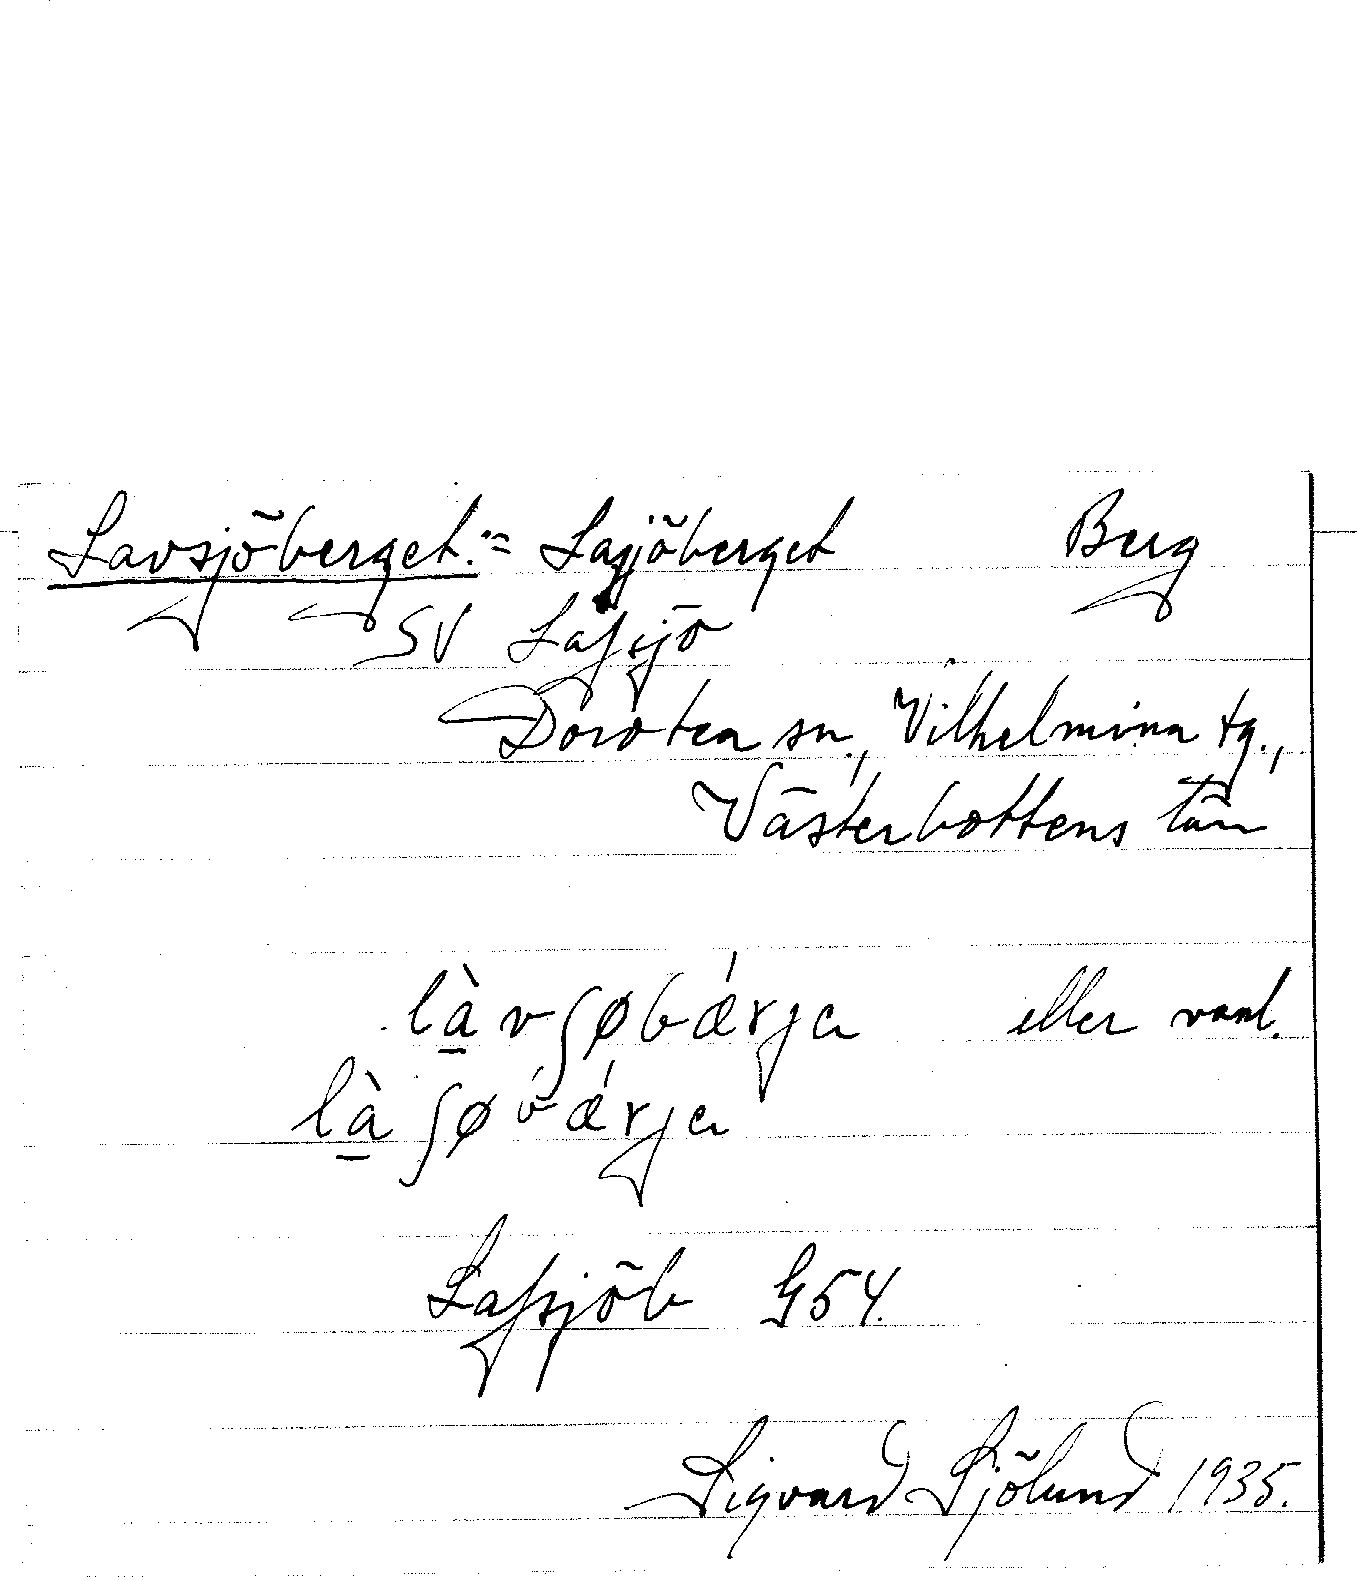 Lavsjöberget. = Lasjöberget Berg
SV Lafsjö
Dorotea sn., Vilhelmina tg.,
Västerbottens län
là̱vʃøbǽrja eller vanl.
là̱ʃøbǽrja
Lafsjöb G54.
Sigvard Sjölund 1935.